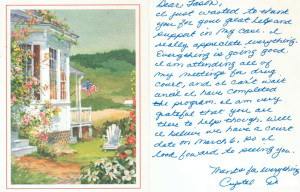 Dear Jason,
I just wanted to thank
you for your great help and
support in my case. I
really appreciate everything.
Everything is going good.
I am attending all of
my meetings for drug
court, and I can't wait
until I have completed
the program. I am very
grateful that you are
there to help though. Well
I believe we have a court
date on March 6, so I
look forward to seeing you.
Thanks for everything
Crystal